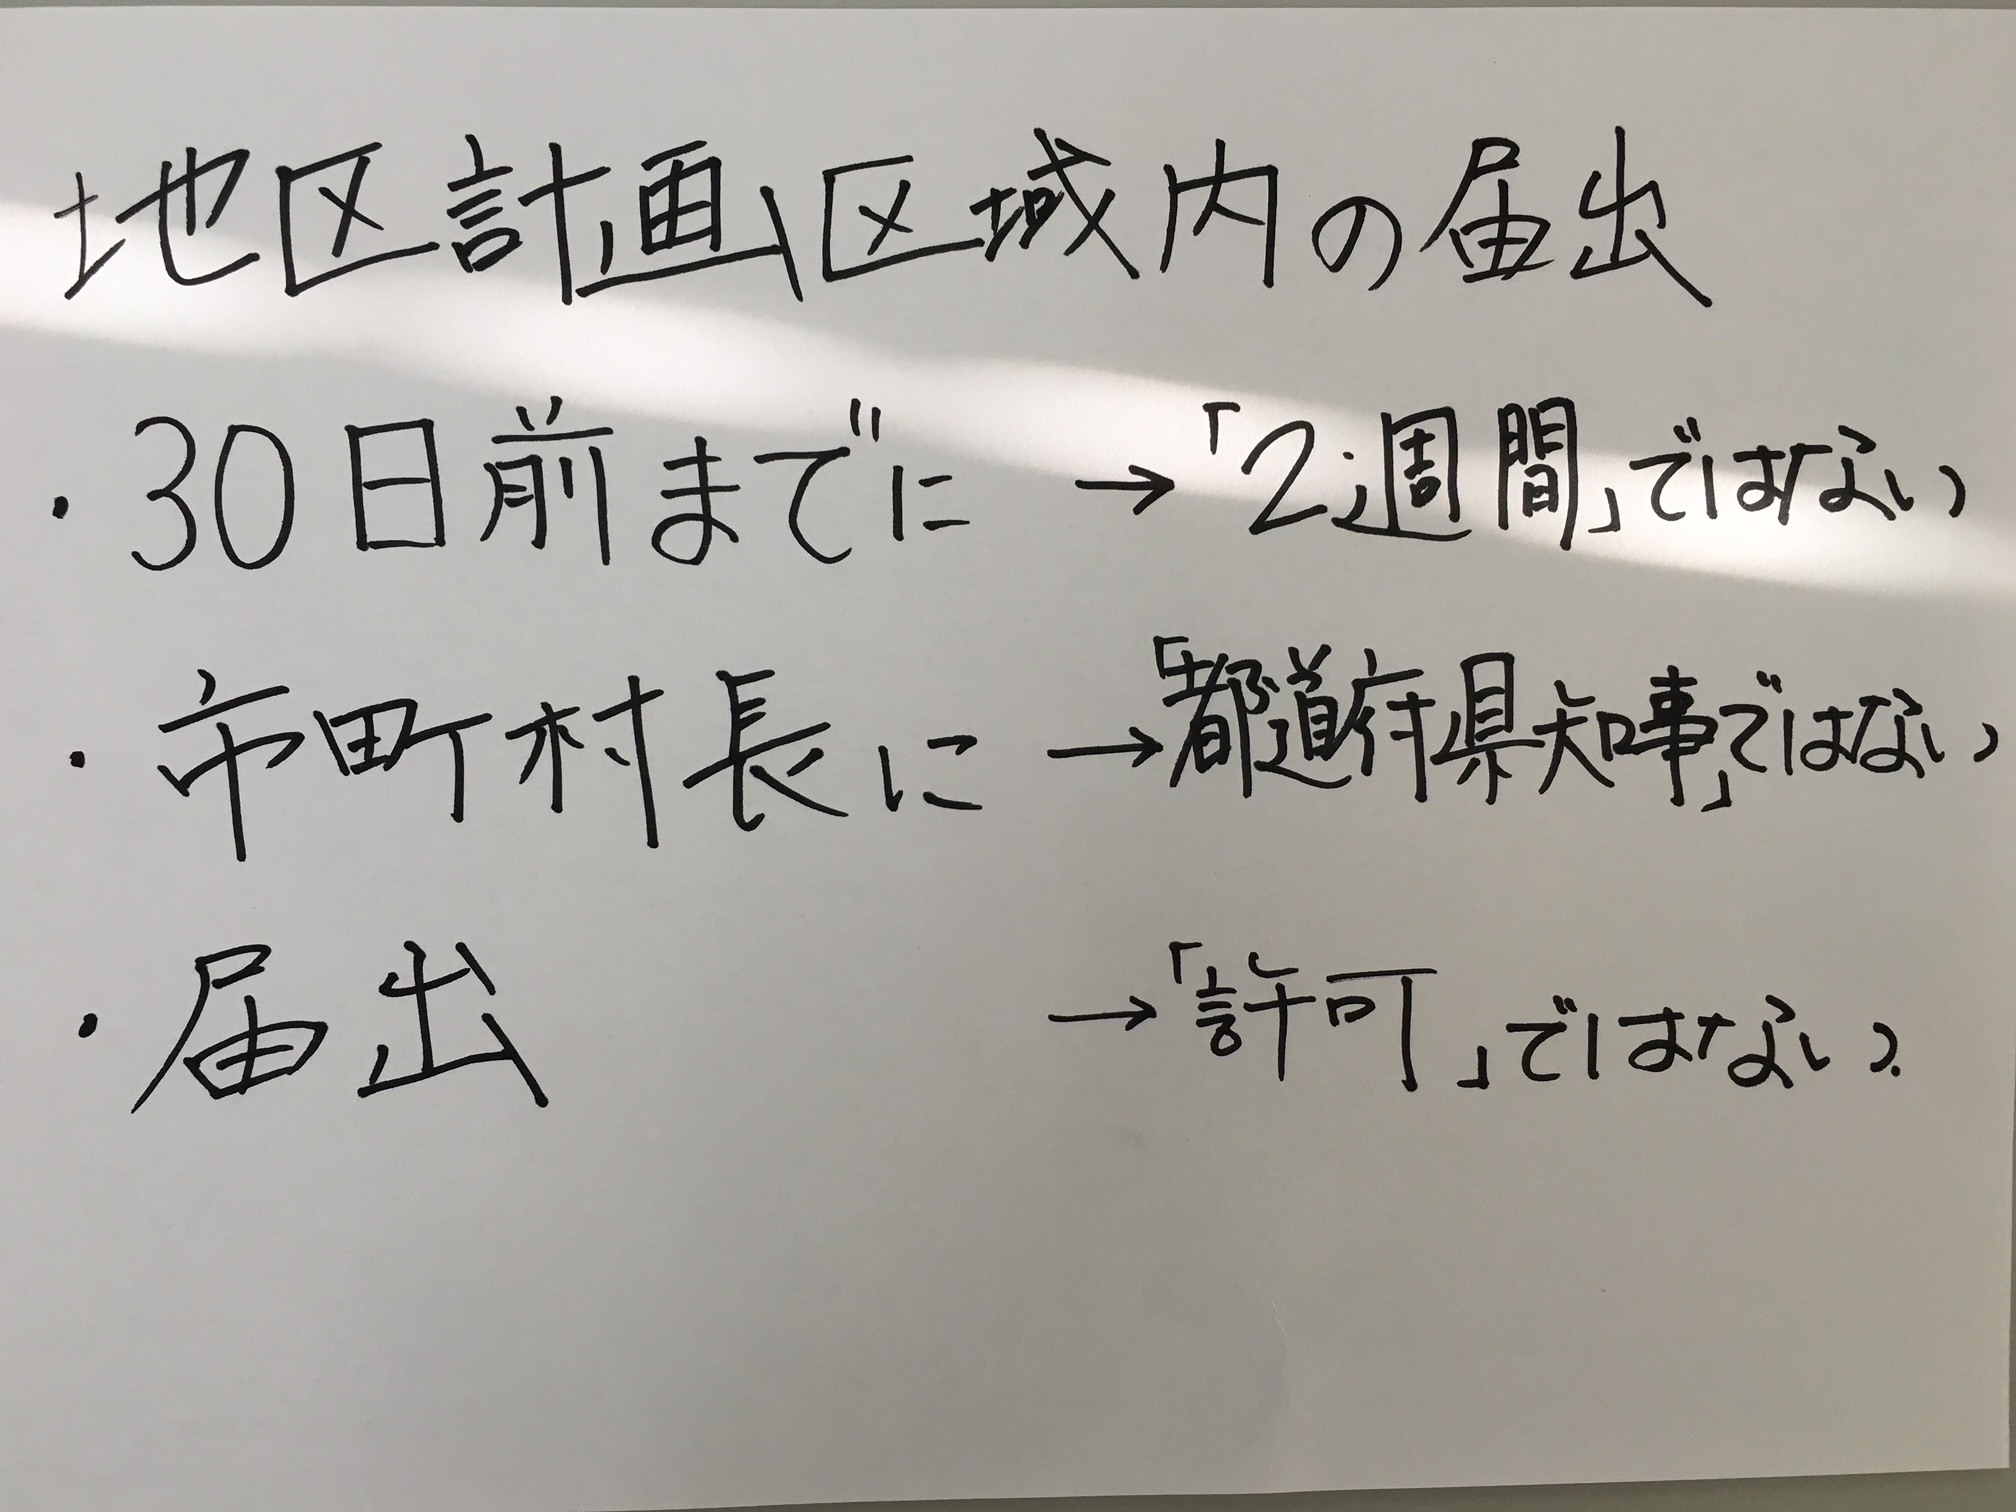 地区計画区域内の届出
・30日前までに →「2週間」ではない
・市町村長に →「都道府県知事」ではない
・届出 →「許可」ではない